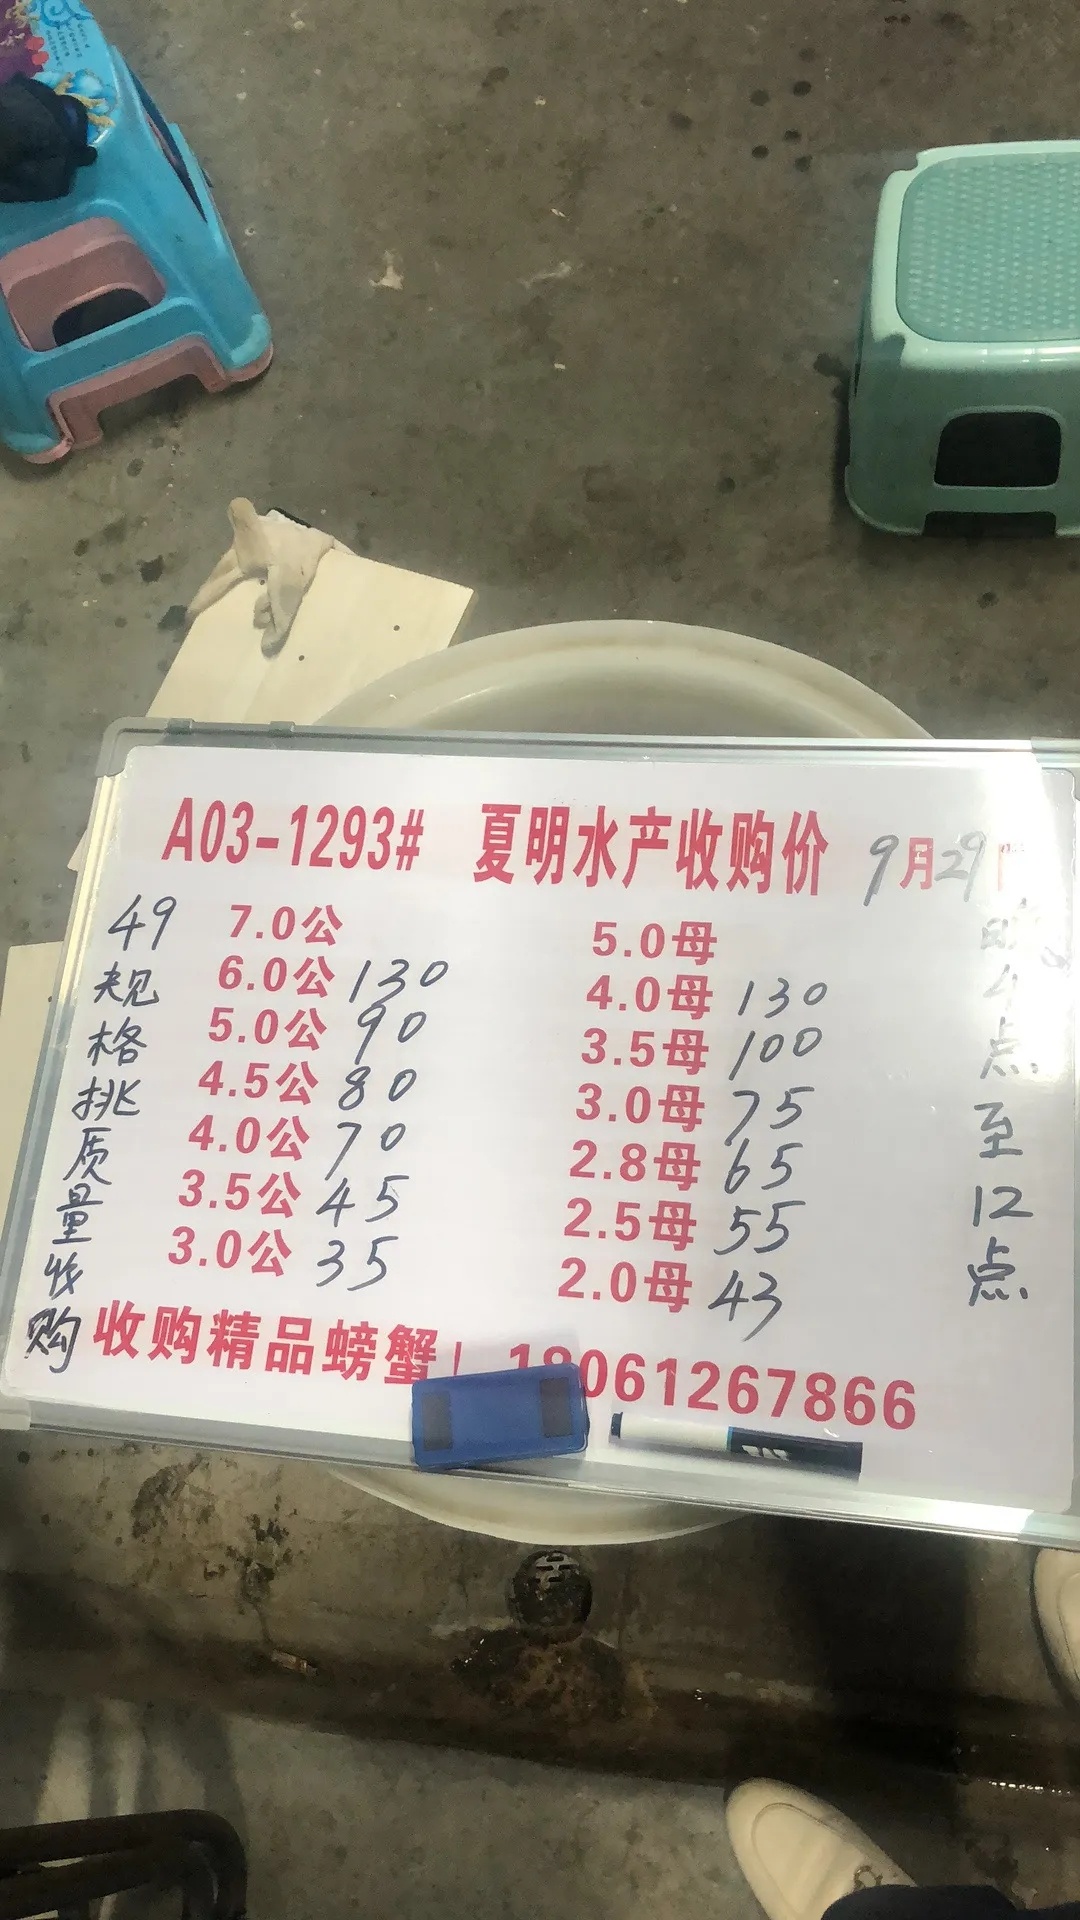 A03-1293# 夏明水产收购价 9月29日
7.0公
6.0公 130
5.0公 90
4.5公 80
4.0公 70
3.5公 45
3.0公 35
5.0母
4.0母 130
3.5母 100
3.0母 75
2.8母 65
2.5母 55
2.0母 43
49规格挑质量收购
4点至12点
收购精品螃蟹! 18061267866